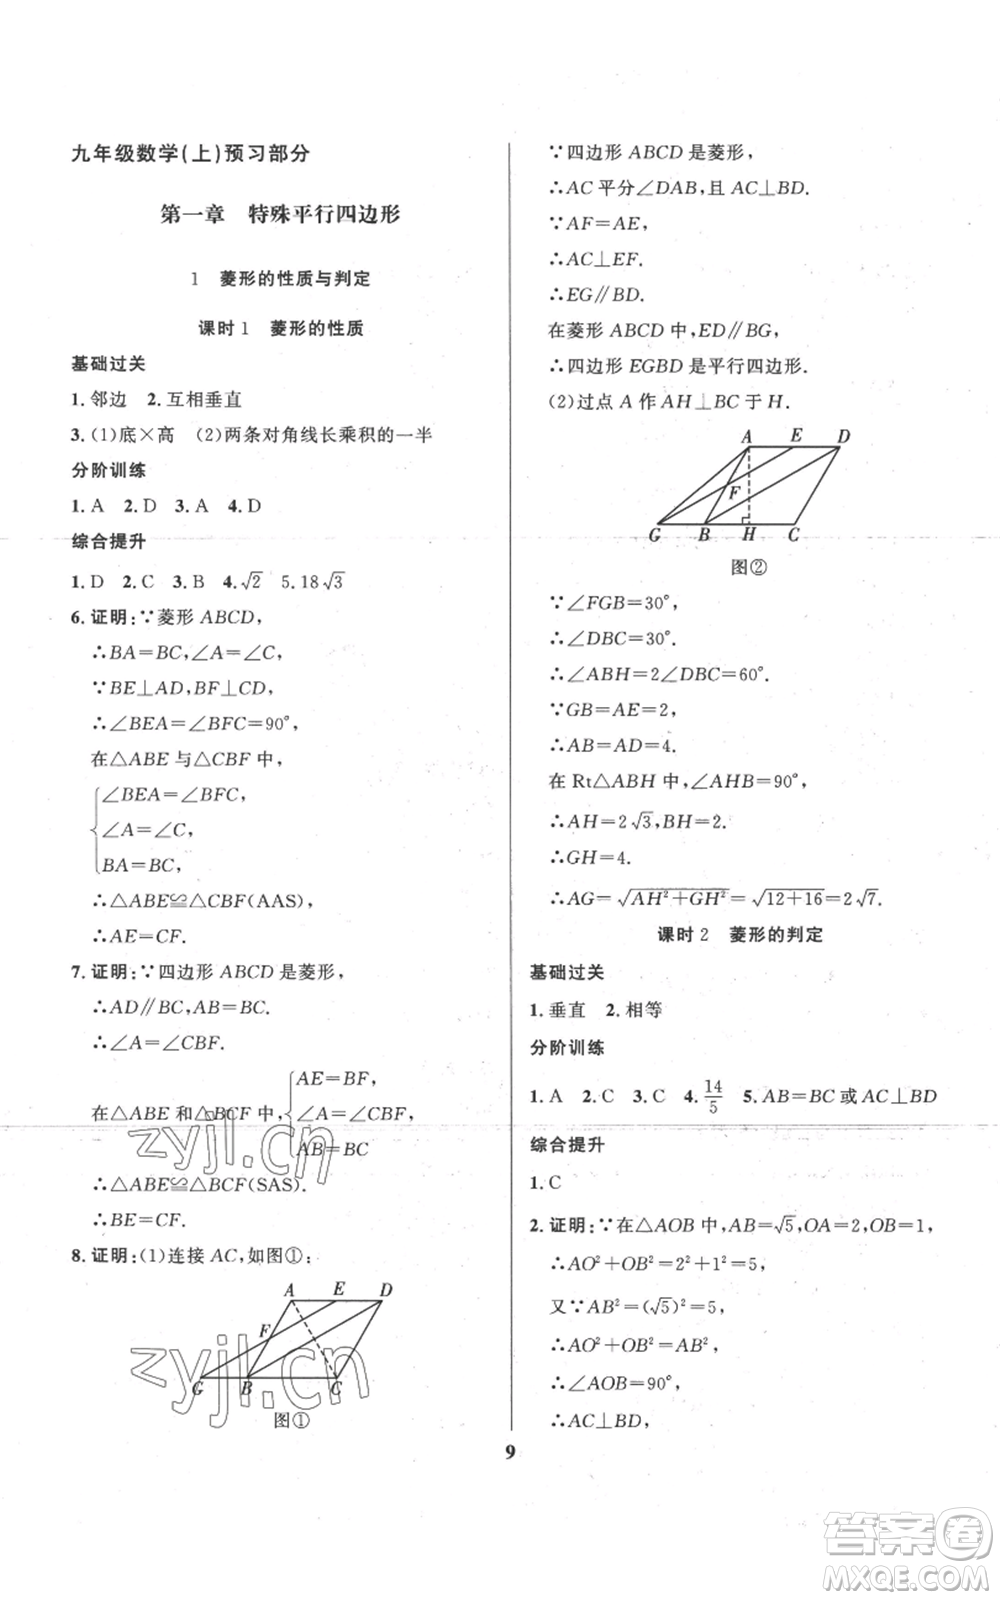 九年级数学(上)预习部分
第一章　特殊平行四边形
1　菱形的性质与判定
课时1　菱形的性质
基础过关
1.邻边　2.互相垂直
3.(1)底×高　(2)两条对角线长乘积的一半
分阶训练
1.A　2.D　3.A　4.D
综合提升
1.D　2.C　3.B　4.√2　5.18√3
6.证明:∵菱形ABCD,
∴BA=BC,∠A=∠C,
∵BE⊥AD,BF⊥CD,
∴∠BEA=∠BFC=90°,
在△ABE与△CBF中,
∠BEA=∠BFC,
∠A=∠C,
BA=BC,
∴△ABE≌△CBF(AAS),
∴AE=CF.
7.证明:∵四边形ABCD是菱形,
∴AD∥BC,AB=BC.
∴∠A=∠CBF.
AE=BF,
在△ABE和△BCF中,∠A=∠CBF,
AB=BC
∴△ABE≌△BCF(SAS).
∴BE=CF.
8.证明:(1)连接AC,如图①:
A E D
F
G B C
图①
∵四边形ABCD是菱形,
∴AC平分∠DAB,且AC⊥BD.
∵AF=AE,
∴AC⊥EF.
∴EG∥BD.
在菱形ABCD中,ED∥BG,
∴四边形EGBD是平行四边形.
(2)过点A作AH⊥BC于H.
A E D
F
G B H C
图②
∵∠FGB=30°,
∴∠DBC=30°.
∴∠ABH=2∠DBC=60°.
∵GB=AE=2,
∴AB=AD=4.
在Rt△ABH中,∠AHB=90°,
∴AH=2√3,BH=2.
∴GH=4.
∴AG=√(AH²+GH²)=√(12+16)=2√7.
课时2　菱形的判定
基础过关
1.垂直　2.相等
分阶训练
1.A　2.C　3.C　4.14/5　5.AB=BC或AC⊥BD
综合提升
1.C
2.证明:∵在△AOB中,AB=√5,OA=2,OB=1,
∴AO²+OB²=2²+1²=5,
又∵AB²=(√5)²=5,
∴AO²+OB²=AB²,
∴∠AOB=90°,
∴AC⊥BD,
9
zyjl.cn
zyjl.cn
答案圈
MXQE.COM